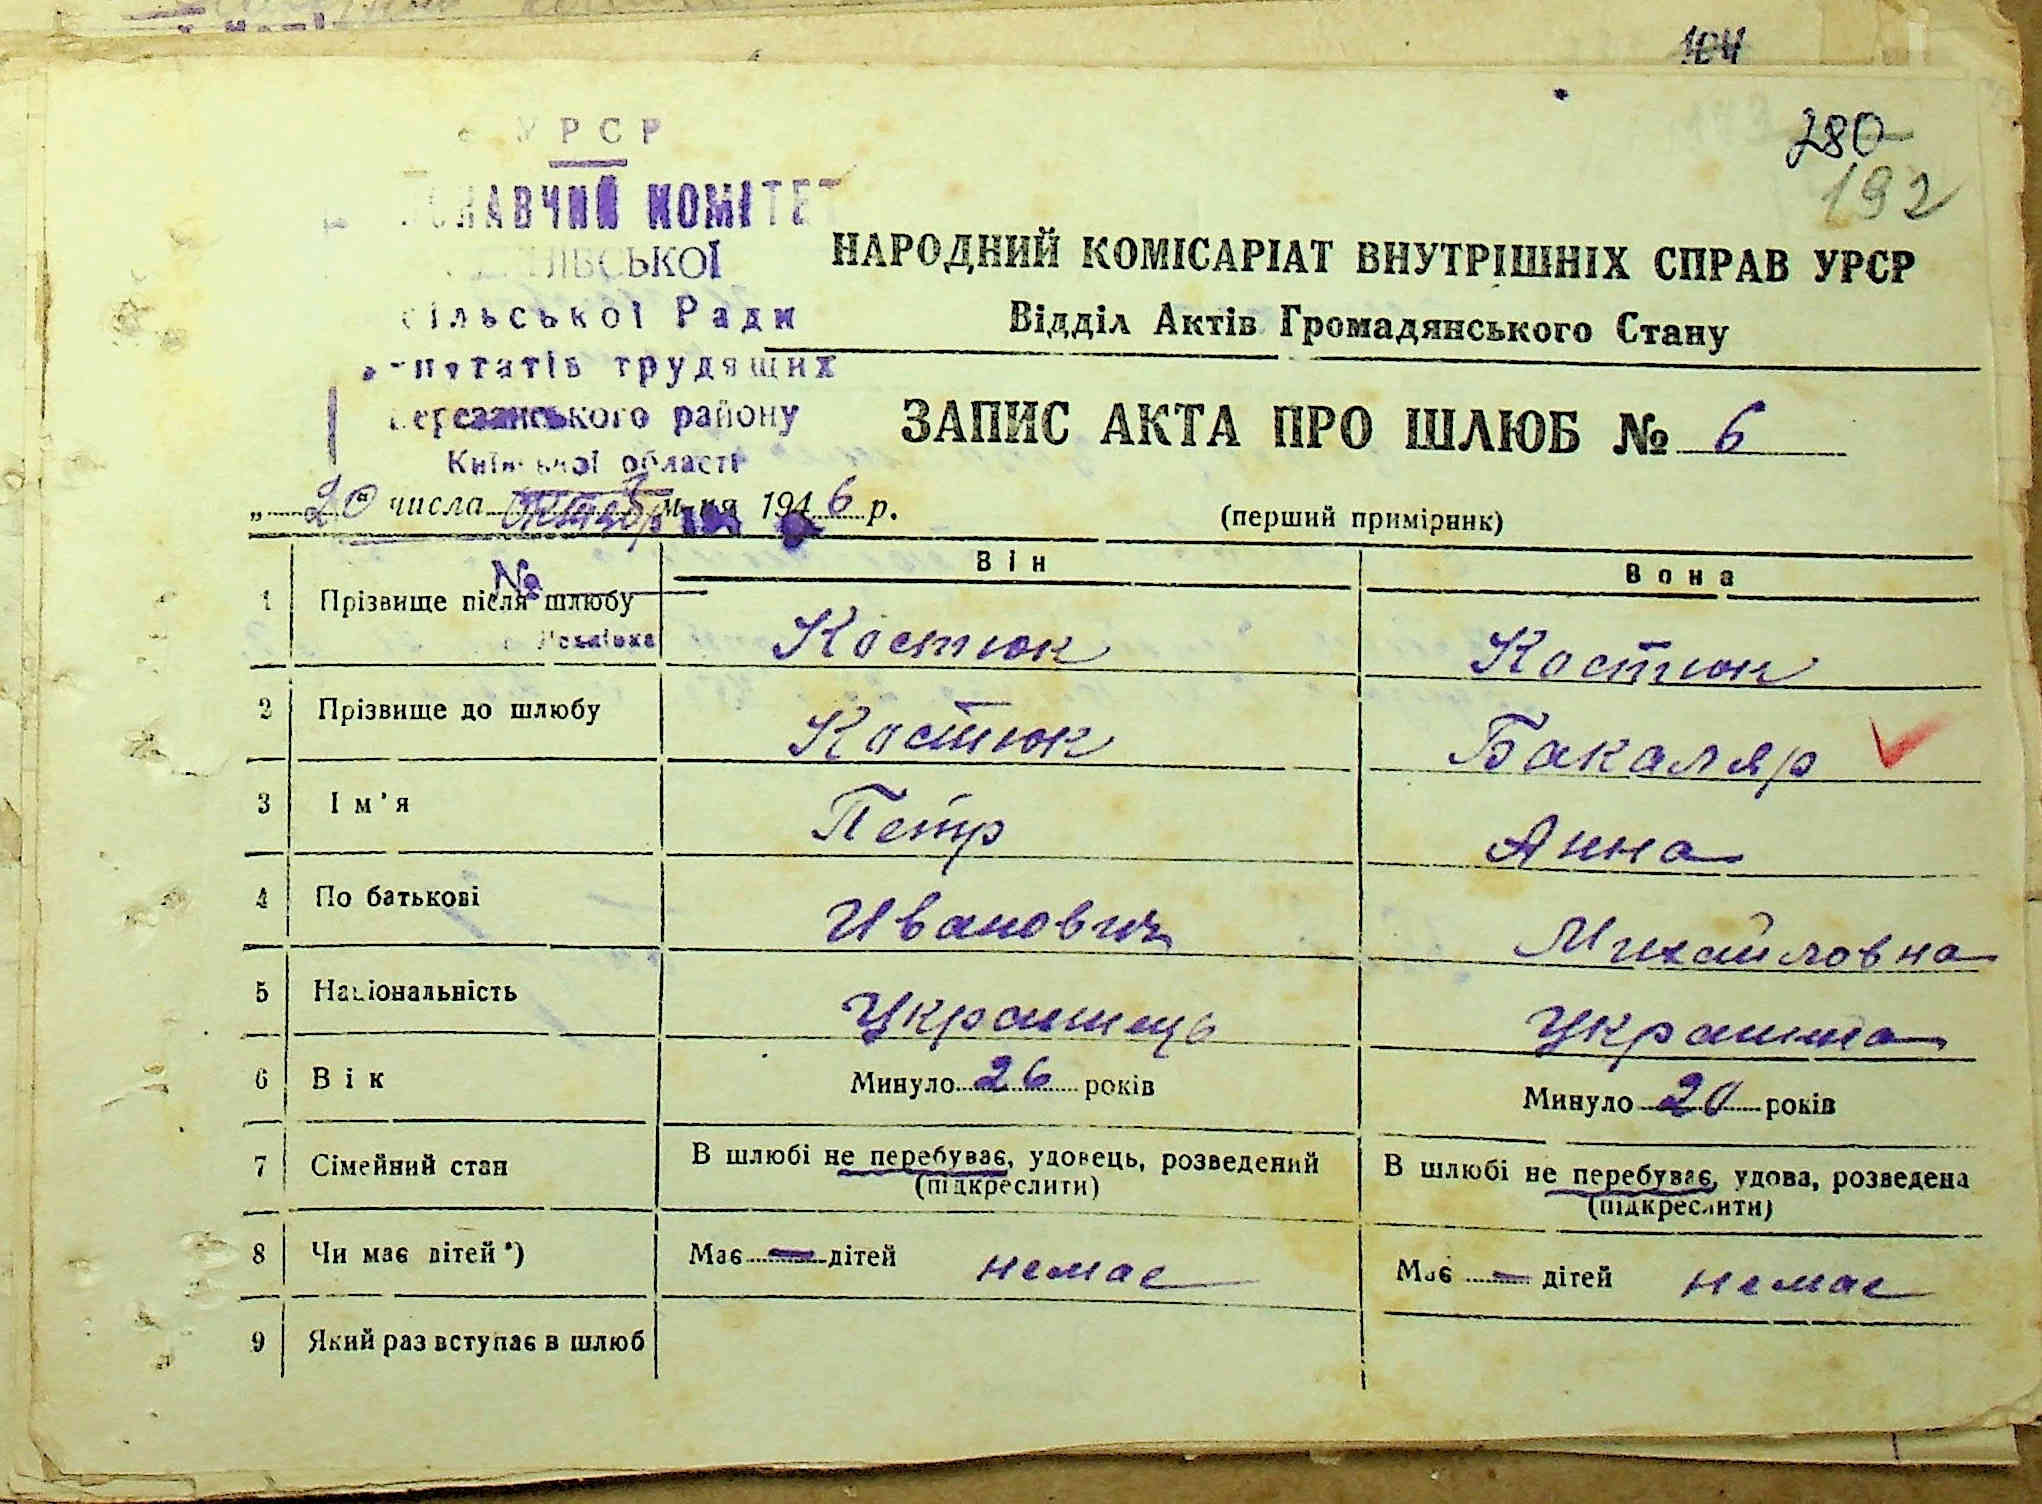 104
280
192
УРСР
КОМІТЕТ
сільської Ради
трудящих
Березанського району
Київської області
НАРОДНИЙ КОМІСАРІАТ ВНУТРІШНІХ СПРАВ УРСР
Відділ Актів Громадянського Стану
ЗАПИС АКТА ПРО ШЛЮБ № 6
„ 20 " числа октября м-ця 1946 р.
(перший примірник)
№
Він Вона
1 Прізвище після шлюбу Костюк Костюк
2 Прізвище до шлюбу Костюк Бакаляр
3 Ім'я Петр Анна
4 По батькові Иванович Михайловна
5 Національність Украинець Украинка
6 Вік Минуло 26 років Минуло 20 років
7 Сімейний стан В шлюбі не перебуває, удовець, розведений В шлюбі не перебуває, удова, розведена
(підкреслити) (підкреслити)
8 Чи має дітей *) Має — дітей немае Має — дітей немае
9 Який раз вступає в шлюб